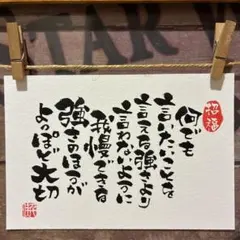 招福
何でも
言いたいことを
言える強さより
言わないように
我慢できる
強さのほうが
よっぽど大切
STAR W